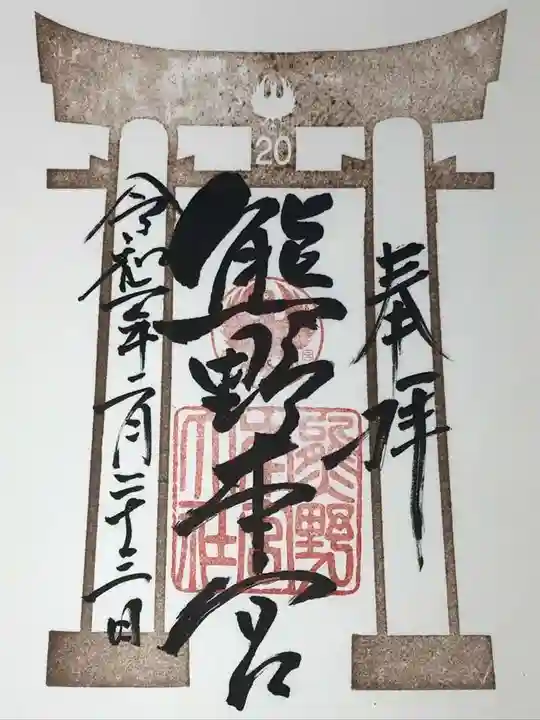 20
奉拝
熊野本宮
熊野
本宮
大社
令和二年二月二十三日